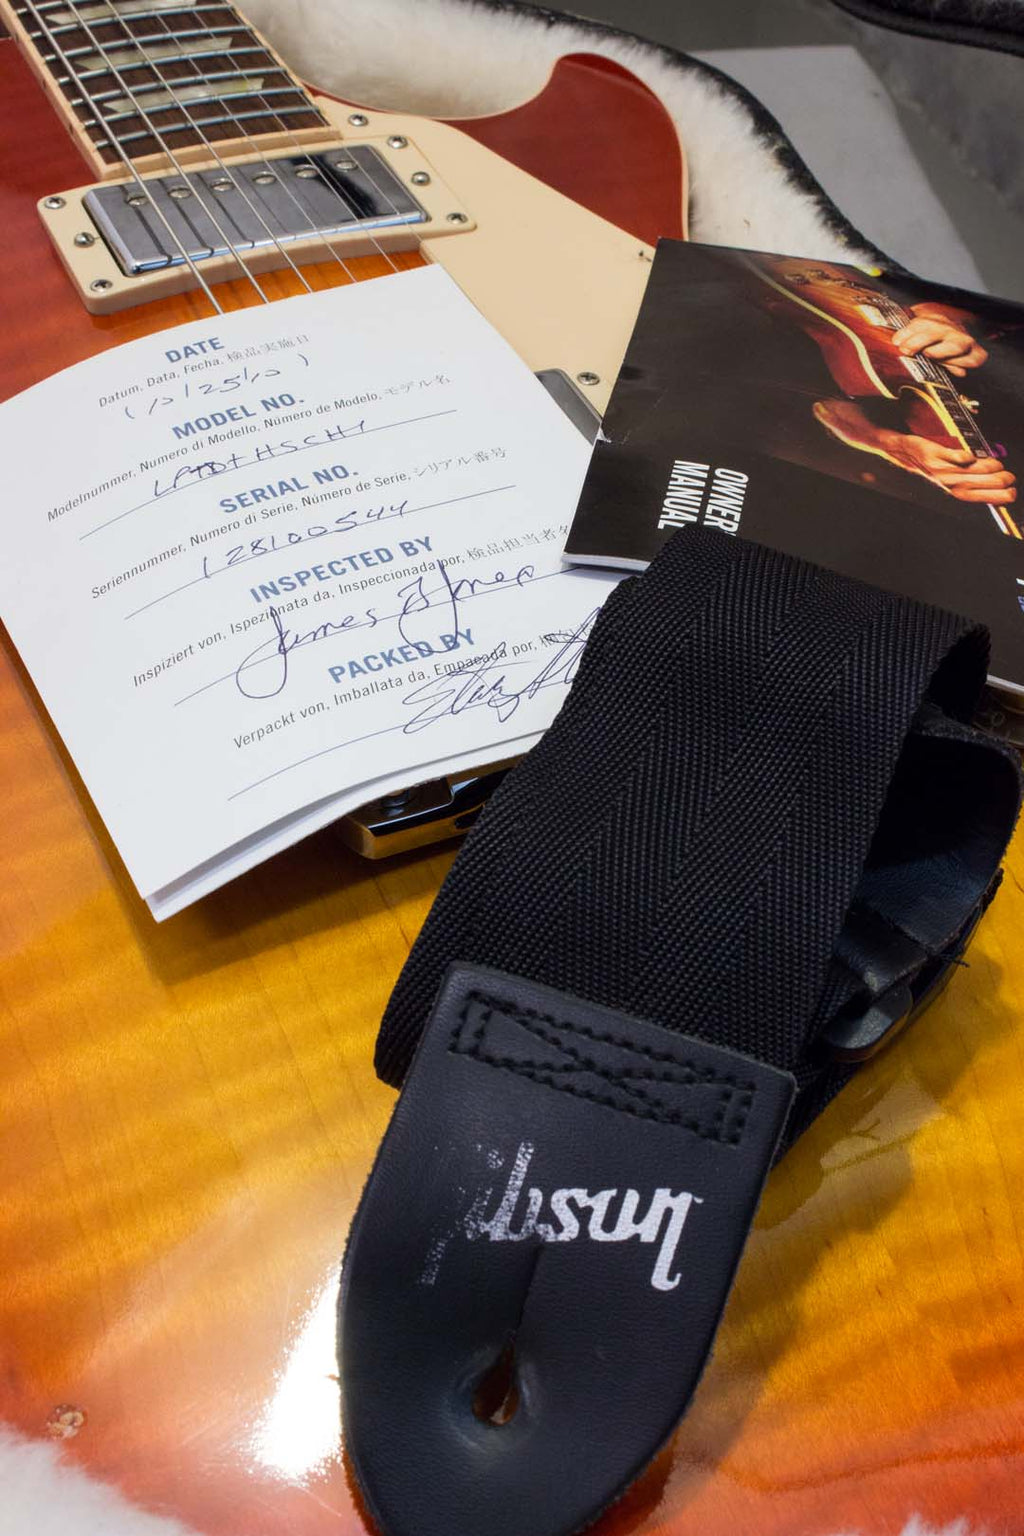 DATE
Datum, Data, Fecha, 検品実施日
(10/25/10)
MODEL NO.
Modelnummer, Numero di Modello, Número de Modelo, モデル名
LPTDTHSCH1
SERIAL NO.
Seriennummer, Numero di Serie, Número de Serie, シリアル番号
128100544
INSPECTED BY
Inspiziert von, Ispezionata da, Inspeccionada por, 検品担当者
James
PACKED BY
Verpackt von, Imballata da, Empacada por,
OWNER'
MANUAL